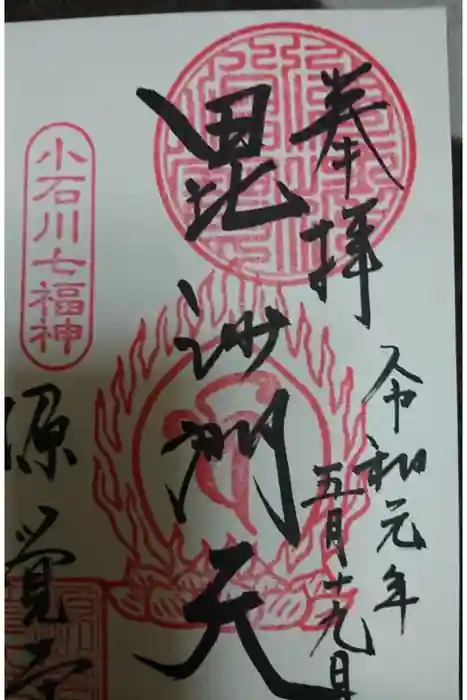 奉拝
令和元年
五月十九日
毘沙門天
小石川七福神
源覚寺